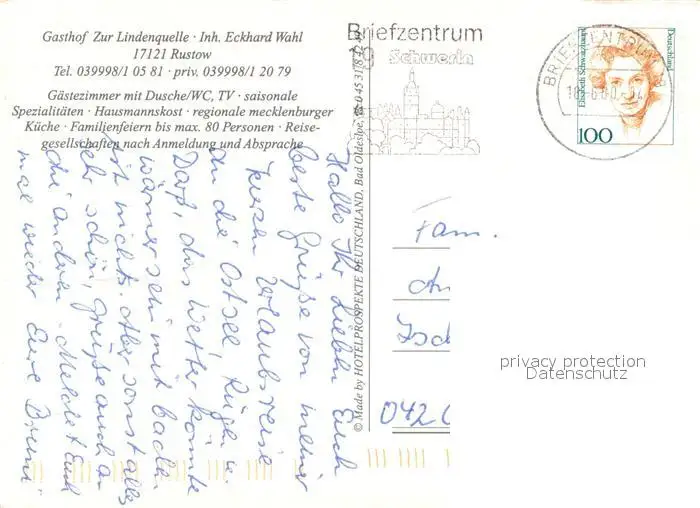 Gasthof Zur Lindenquelle · Inh. Eckhard Wahl
17121 Rustow
Tel. 039998/1 05 81 · priv. 039998/1 20 79
Gästezimmer mit Dusche/WC, TV · saisonale
Spezialitäten · Hausmannskost · regionale mecklenburger
Küche · Familienfeiern bis max. 80 Personen · Reise-
gesellschaften nach Anmeldung und Absprache
Briefzentrum
19
Schwerin
BRIEFZENTRUM
Elisabeth Schwarzhaupt
Deutschland
100
© Made by HOTELPROSPEKTE DEUTSCHLAND, Bad Oldesloe,
Hallo Ihr Lieben Euch
beste Grüße von meiner
kurzen Urlaubsreise
an die Ostsee, Rügen u.
Darß, das Wetter könnte
wärmer sein mit baden
ist nichts. Aber sonst alles
sehr schön, Grüße auch an
die anderen. Meldet Euch
mal wieder Eure
Fam.
042
privacy protection
Datenschutz